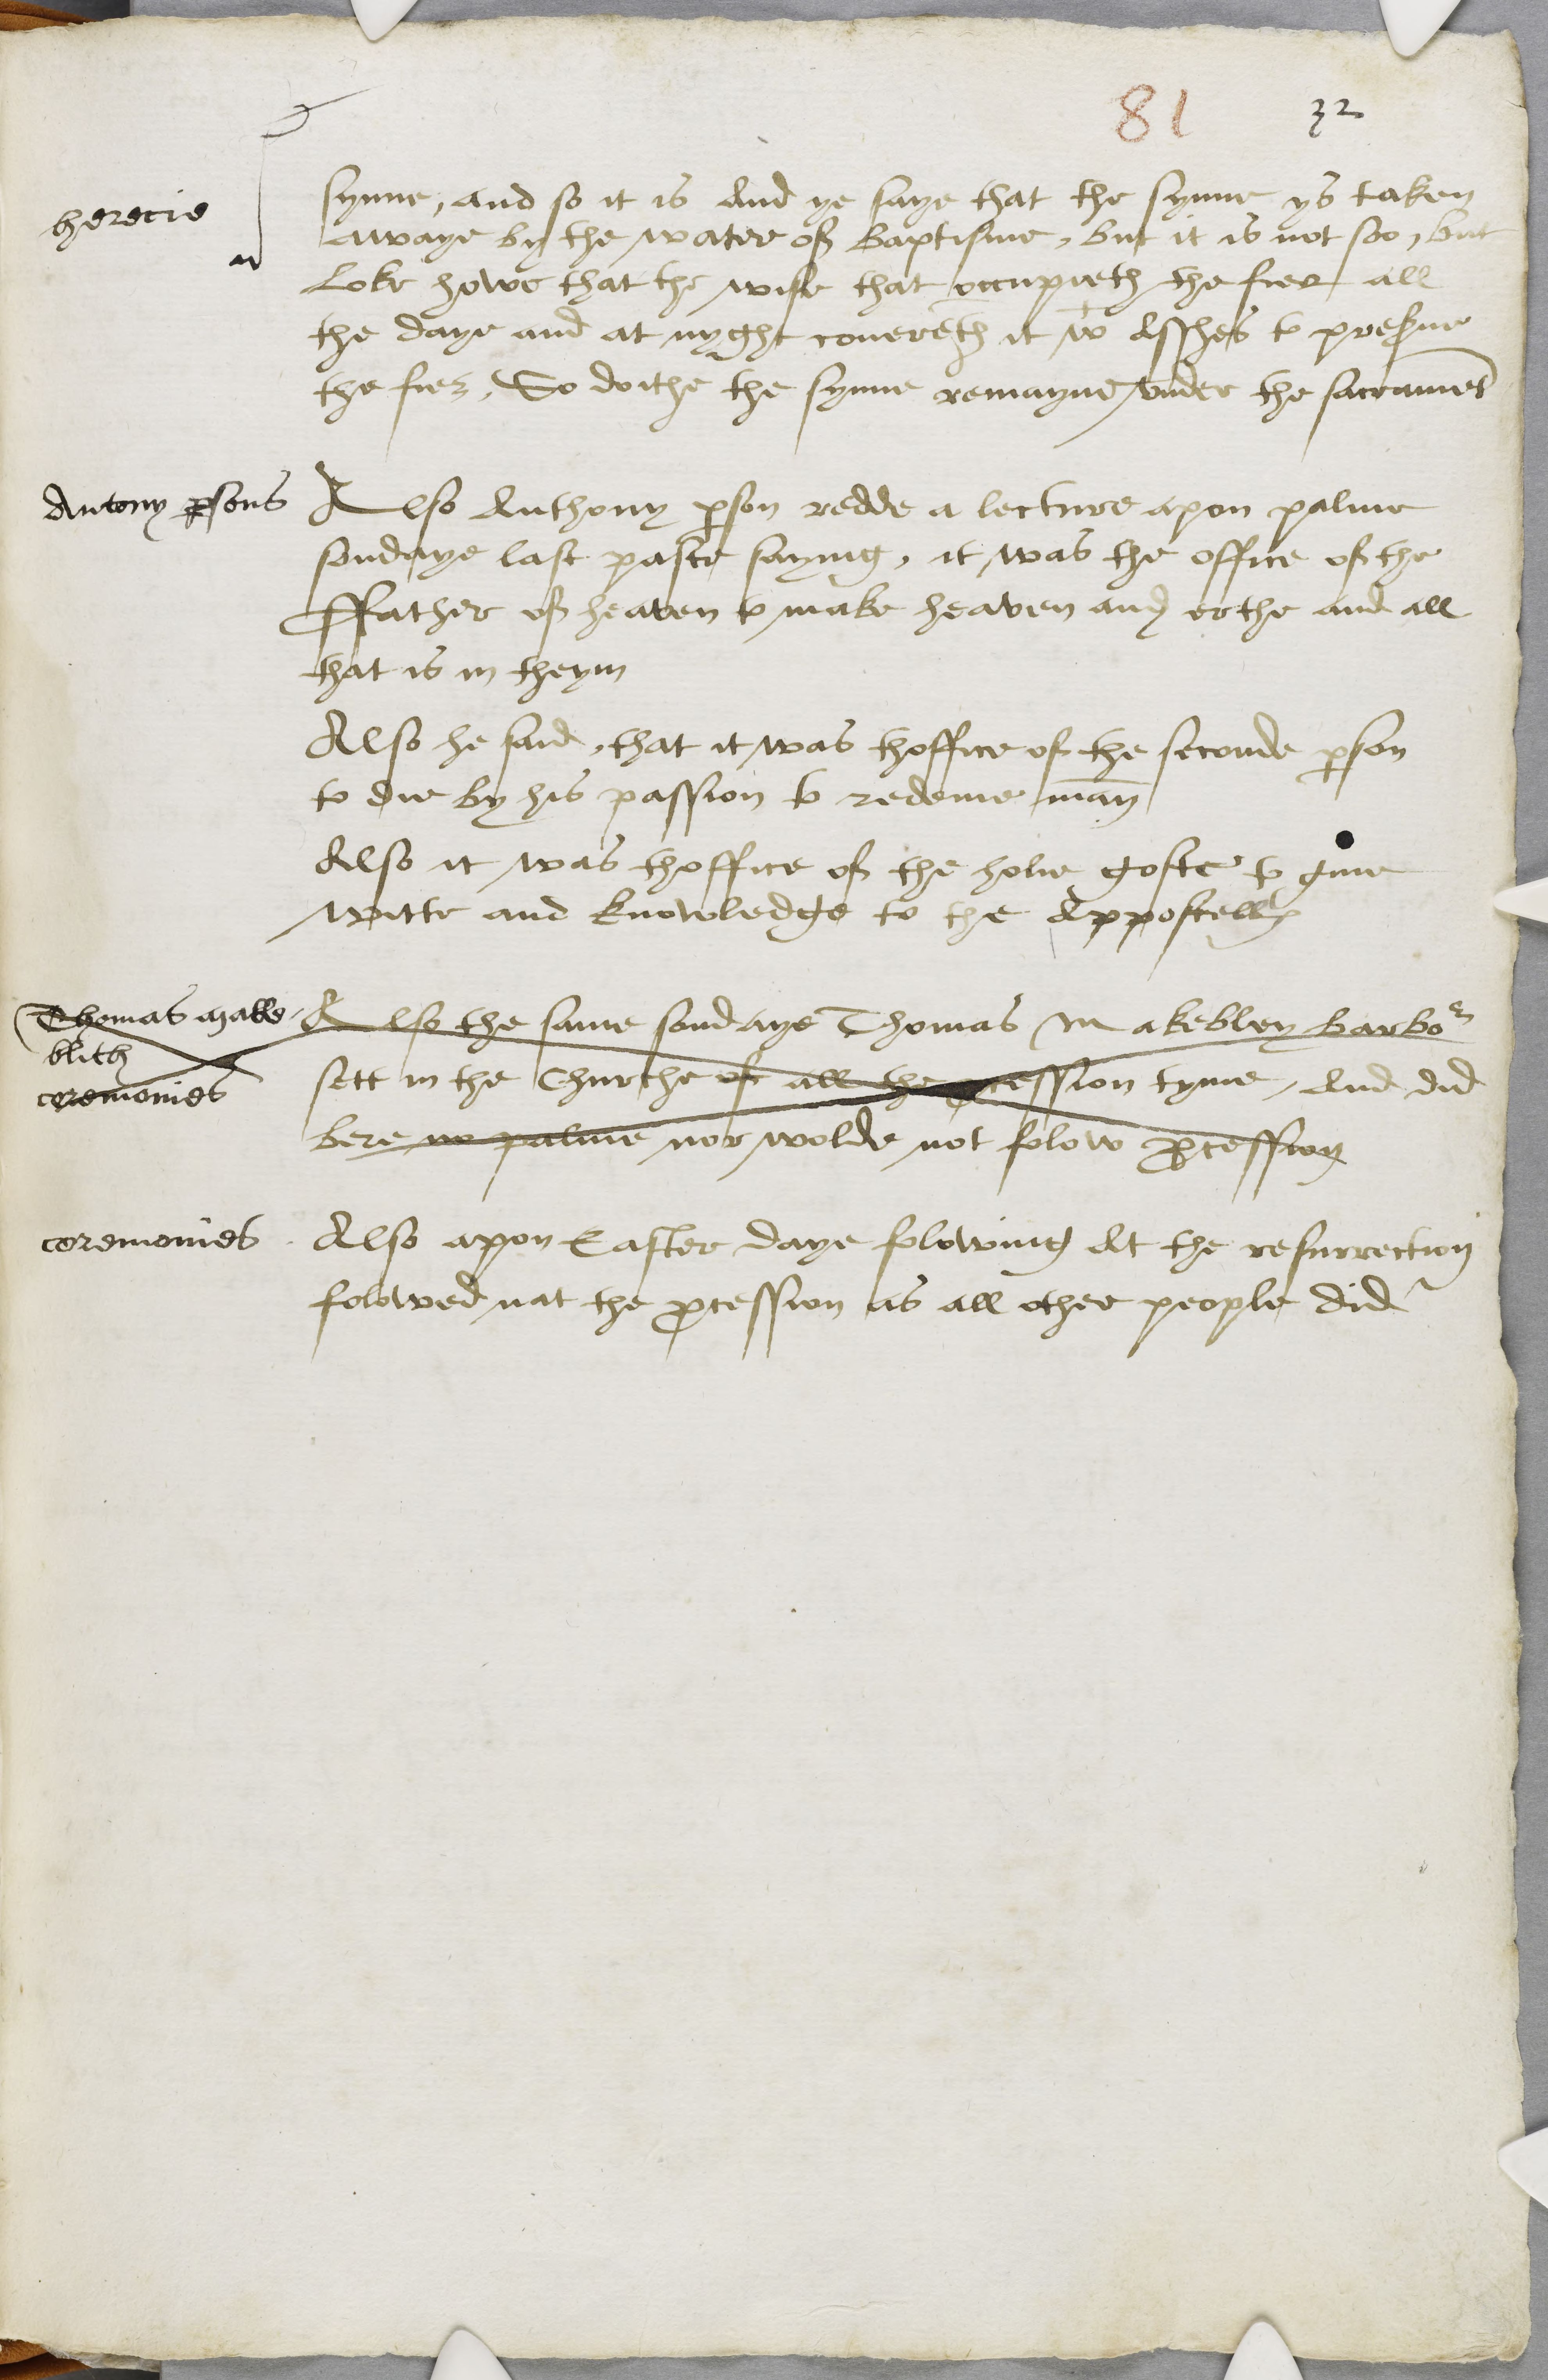 81 32
herecie
synne, and so it is And ye saye that the synne ys taken
awaye by the water of baptisme, but it is not soo, but
loke howe that the wife that occupieth the fier all
the daye and at nyght couereth it wt Asshes to preserue
the fier, So doithe the synne remayne vnder the sacrament
Antony psons
Also Anthony pson redde a lecture apon palme
sondaye last paste saying, it was the office of the
ffather of heaven to make heaven and erthe and all
that is in theym
Also he said, that it was thoffice of the seconde pson
to die by his passion to redeme man
Also it was thoffice of the holie goste to giue
witte and knowledge to the Appostell
Thomas make
blith
ceremonies
Also the same sondaye Thomas Makebley barbor
sett in the Churche of all the pcession tyme, And did
bere no palme nor wolde not folow pcession
ceremonies
Also apon Easter daye folowing At the resurrection
folowed nat the pcession as all other people did